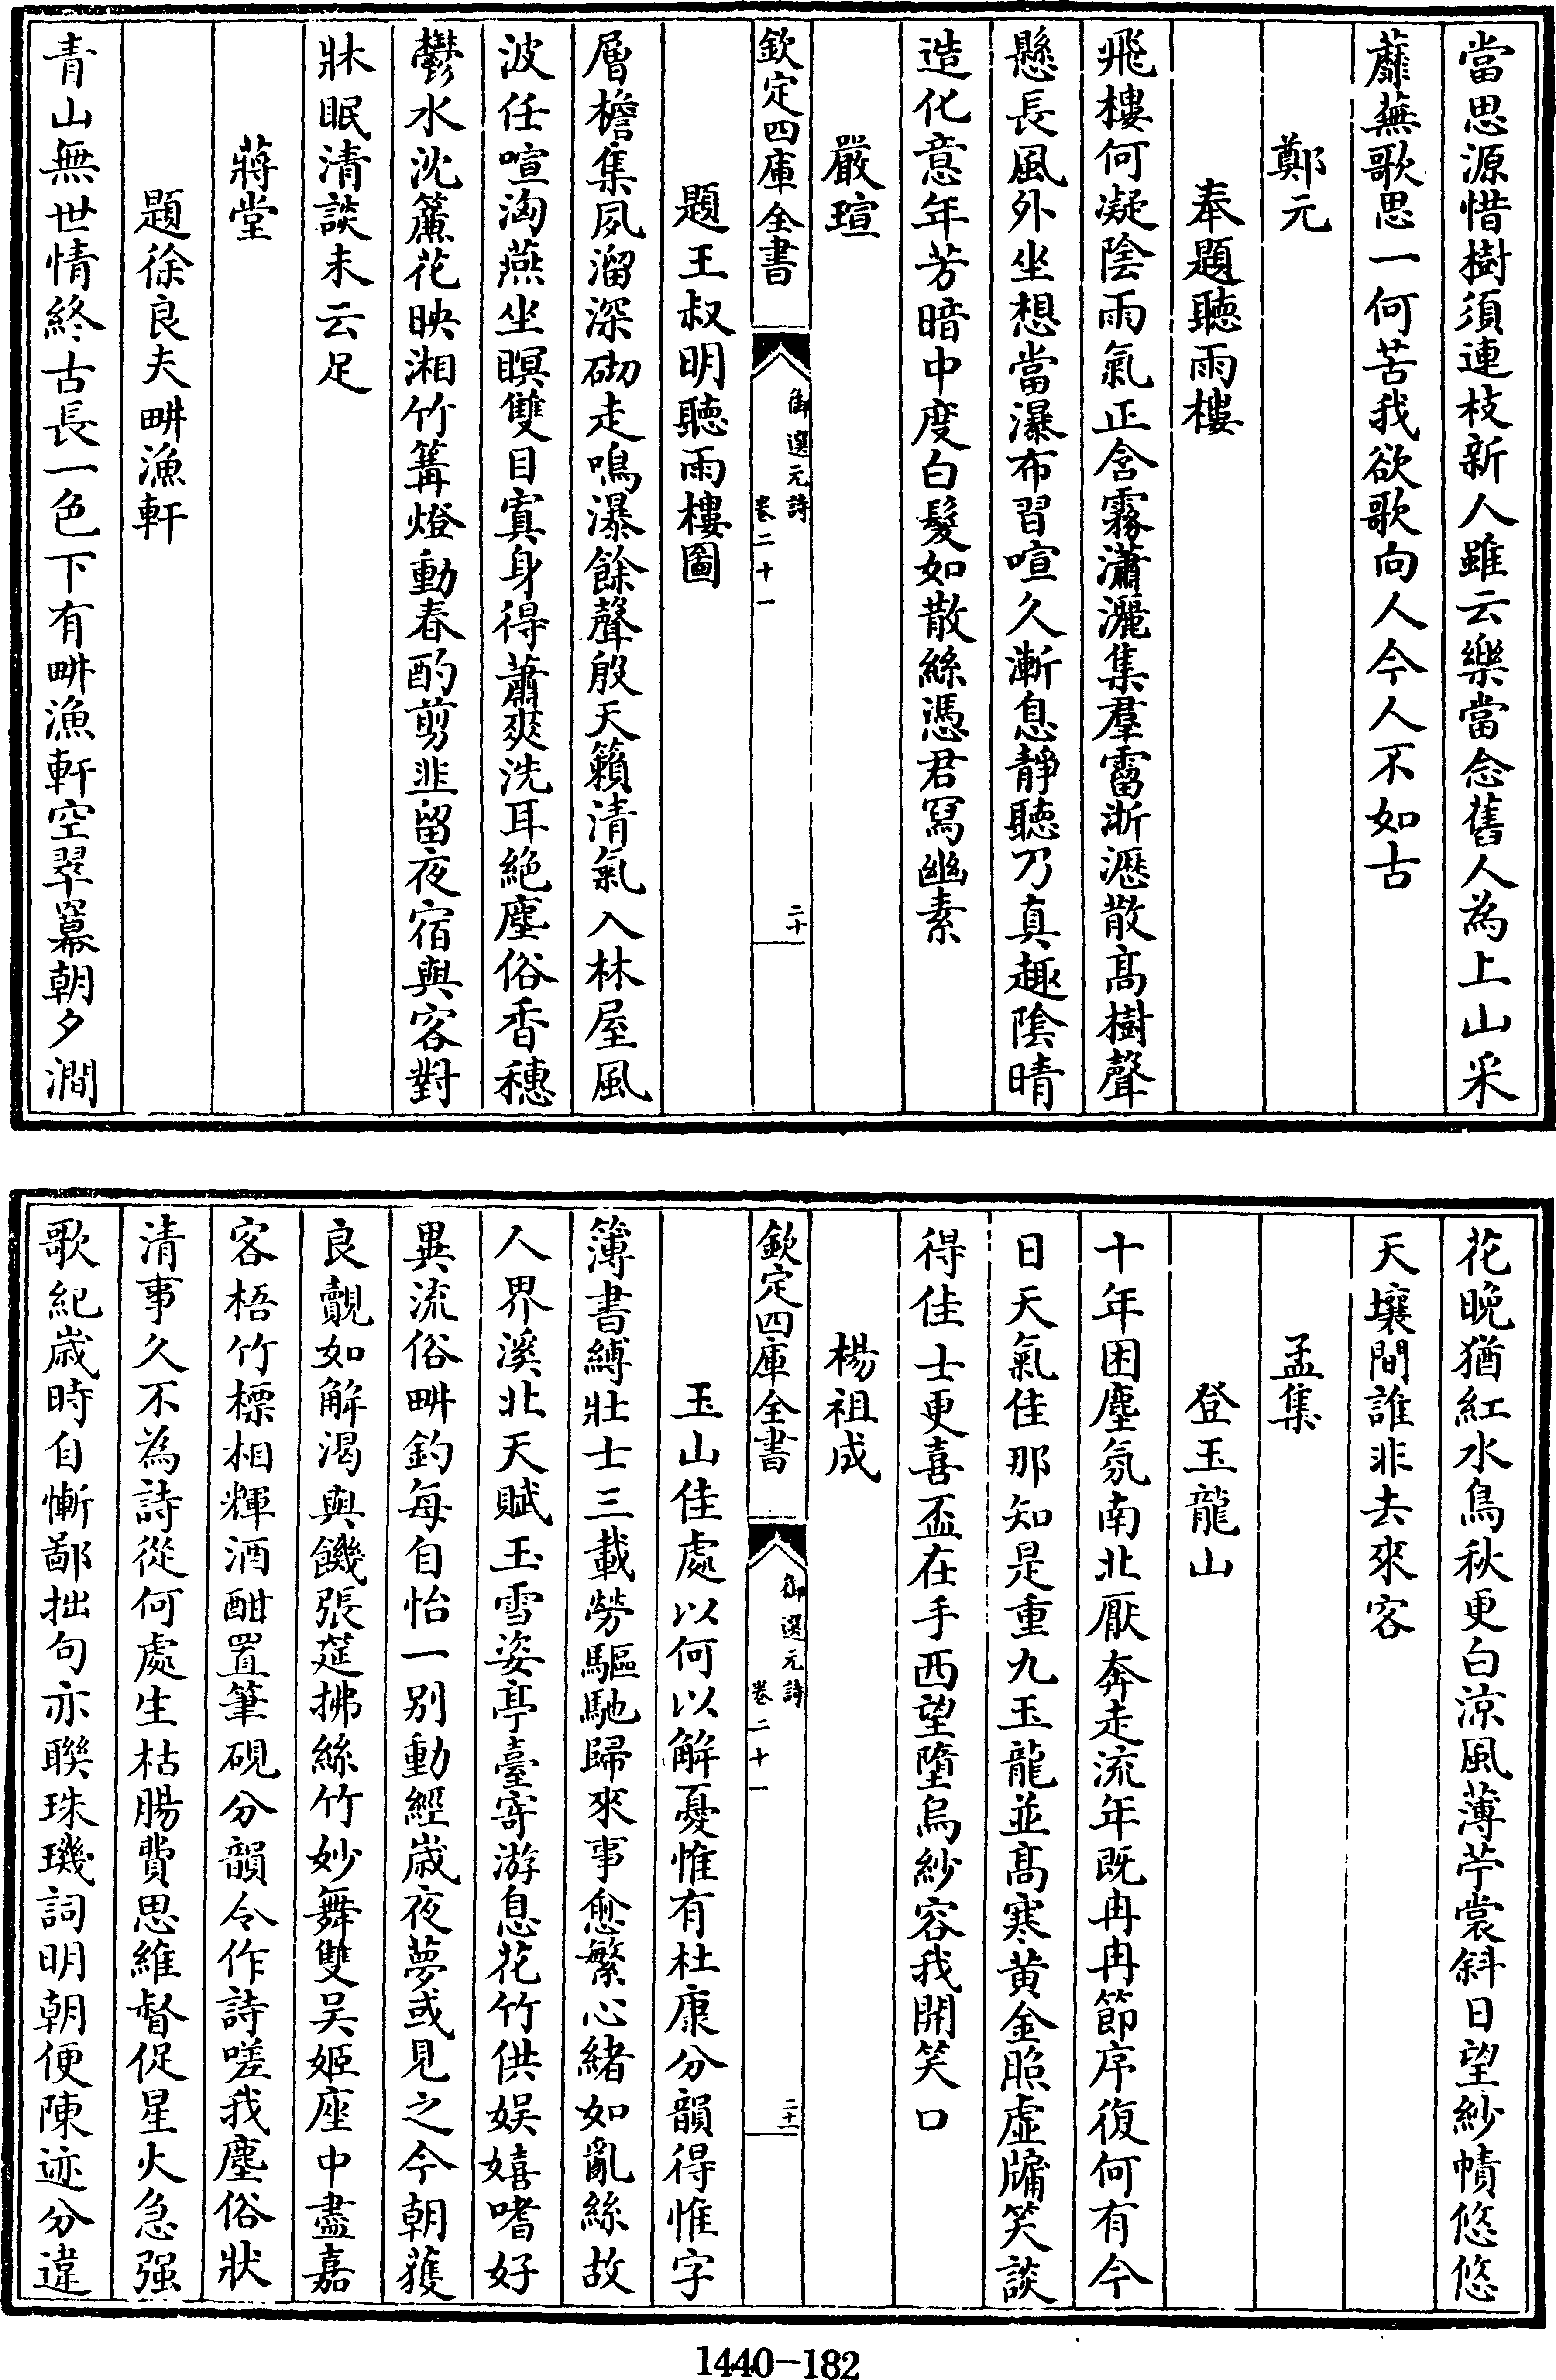 當思源惜樹須連枝新人雖云樂當念舊人為上山采
蘼蕪歌思一何苦我欲歌向人今人不如古
鄭元
奉題聽雨樓
飛樓何凝陰雨氣正含霧瀟灑集羣霤淅瀝散高樹聲
懸長風外坐想當瀑布習喧久漸息靜聽乃真趣陰晴
造化意年芳暗中度白髮如散絲憑君冩幽素
嚴瑄
欽定四庫全書
御選元詩
卷二十一
二十
題王叔明聽雨樓圖
層檐集夙溜深砌走鳴瀑餘聲殷天籟清氣入林屋風
波任喧洶燕坐瞑雙目寘身得蕭爽洗耳絶塵俗香穗
鬱水沈簾花映湘竹篝燈動春酌剪韭留夜宿與客對
牀眠清談未云足
蔣堂
題徐良夫畊漁軒
青山無世情終古長一色下有畊漁軒空翠羃朝夕澗
花晚猶紅水鳥秋更白涼風薄苧裳斜日望紗幘悠悠
天壤間誰非去來客
孟集
登玉龍山
十年困塵氛南北厭奔走流年既冉冉節序復何有今
日天氣佳那知是重九玉龍並髙寒黄金照虛牖笑談
得佳士更喜盃在手西望墮烏紗容我開笑口
楊祖成
欽定四庫全書
御選元詩
卷二十一
二十一
玉山佳處以何以解憂惟有杜康分韻得惟字
簿書縛壯士三載勞驅馳歸來事愈繁心緒如亂絲故
人界溪北天賦玉雪姿亭臺寄游息花竹供娱嬉嗜好
異流俗畊釣每自怡一别動經歲夜夢或見之今朝獲
良覿如解渴與饑張筵拂絲竹妙舞雙吴姬座中盡嘉
客梧竹標相輝酒酣置筆硯分韻令作詩嗟我塵俗狀
清事久不為詩從何處生枯腸費思維督促星火急强
歌紀歲時自慚鄙拙句亦聯珠璣詞明朝便陳迹分違
1440-182